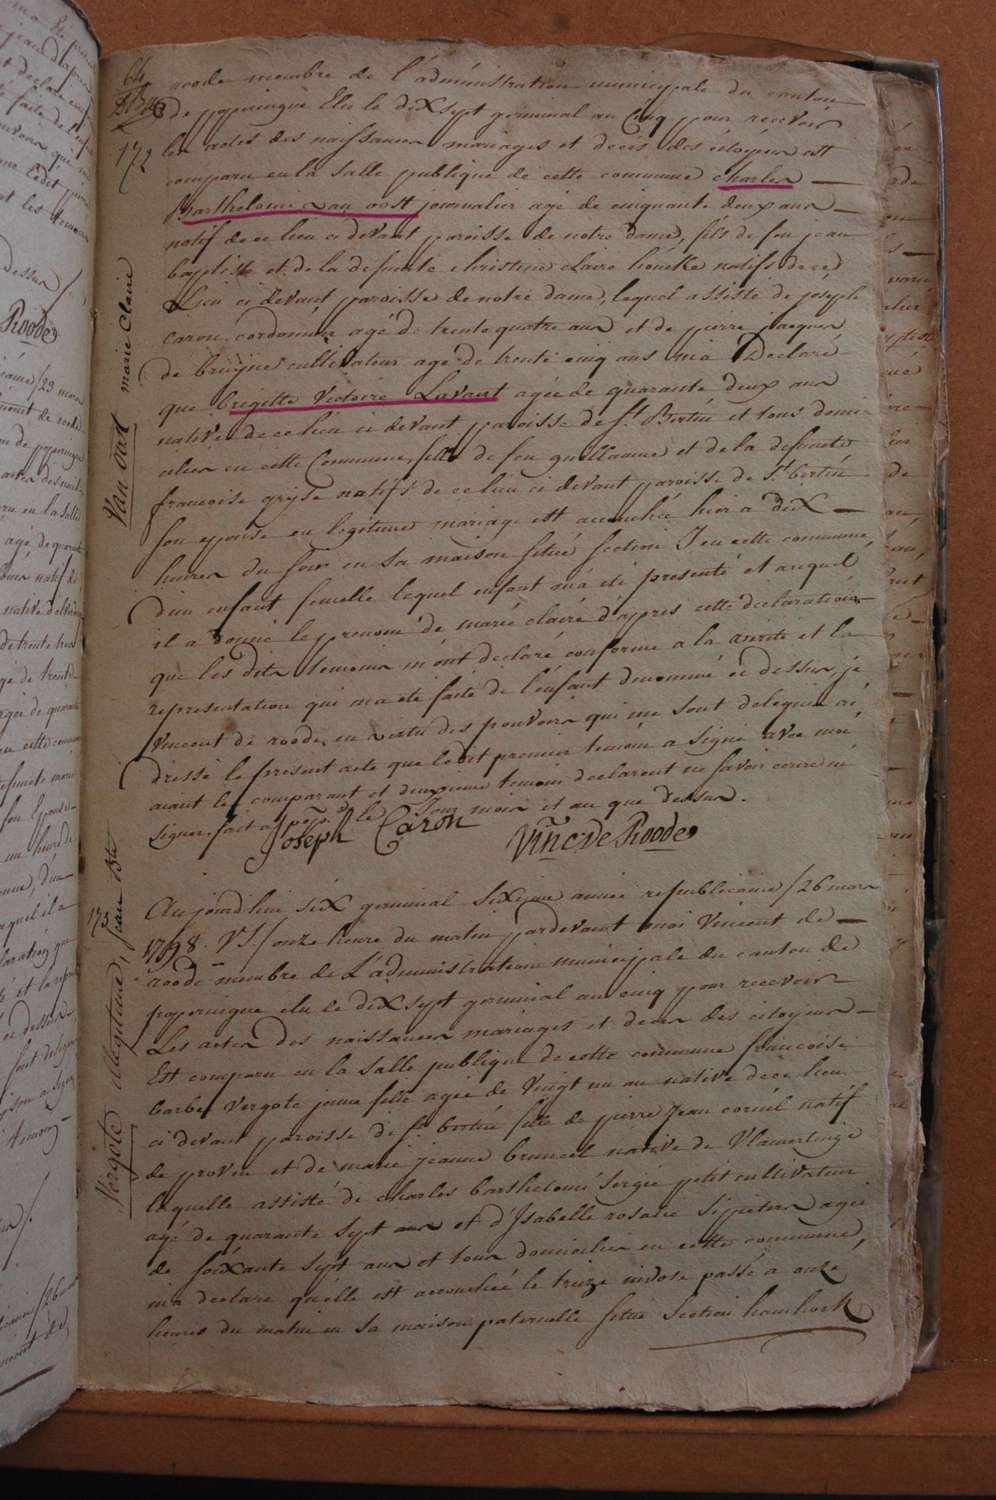 64
172
Van oost marie Claire
roode membre de l'administration municipale du canton
de poperingue Elu le dix sept germinal an Cinq pour recevoir
les actes des naissances mariages et décès des citoyens est
comparu en la salle publique de cette commune Charles
Barthelomé van oost journalier agé de cinquante deux ans
natif de ce lieu ci devant paroisse de notre dame, fils de feu jean
baptiste et de la defunte christine claire houcke natifs de ce
Lieu ci devant paroisse de notre dame, lequel assisté de joseph
caron cordonnier agé de trente quatre ans et de pierre jacques
de bruyne cultivateur age de trente cinq ans m'a Déclaré
que brigitte Victoire Lavant agée de quarante deux ans
native de ce lieu ci devant paroisse de St. Bertin et tous domi-
ciliés en cette Commune, fille de feu guillaume et de la defuncte
francoise gryse natifs de ce lieu ci devant paroisse de St. bertin
son epouse en legitime mariage est accouchée hier a dix
heures du soir en sa maison situé section I en cette commune,
d'un enfant femelle lequel enfant m'a été presenté et auquel
il a donné le prenom de marie claire d'apres cette declaration
que les dits temoins m'ont déclaré conforme a la verité et la
representation qui m'a été faite de l'enfant denommé ci dessus, je
vincent de roode, en vertu des pouvoirs qui me sont delegués ai
dressé le present acte que le dit premier temoin a signé avec moi
aiant le comparant et deuxieme temoin declarent ne savoir ecrire ni
signer, fait a pop: le Jour mois et an que dessus.
Joseph Caron Vinc: De Roode
173
Vergote illegitime, jean Bte
Aujourdhui six germinal sixieme année republicaine /26 mars
1798. V.S./ onze heure du matin pardevant moi Vincent de
roode membre de L'administration municipale du canton de
poperingue elu le dix sept germinal an cinq pour recevoir
Les actes des naissances mariages et deces des citoyens
Est comparu en la salle publique de cette commune francoise
barbe Vergote jeune fille agée de vingt un an native de ce lieu
ci devant paroisse de St. bertin fille de pierre Jean cornil natif
de proven et de marie jeanne bruneel native de Vlamertinge
laquelle assisté de charles barthelomé Sergié petit cultivateur
agé de quarante sept ans et d'Isabelle rosalie Sipieter agée
de soixante sept ans et tous domicilies en cette commune,
m'a declaré qu'elle est accouchée le treize nivose passé a onze
heures du matin en sa maison paternelle situé Section hamhoek